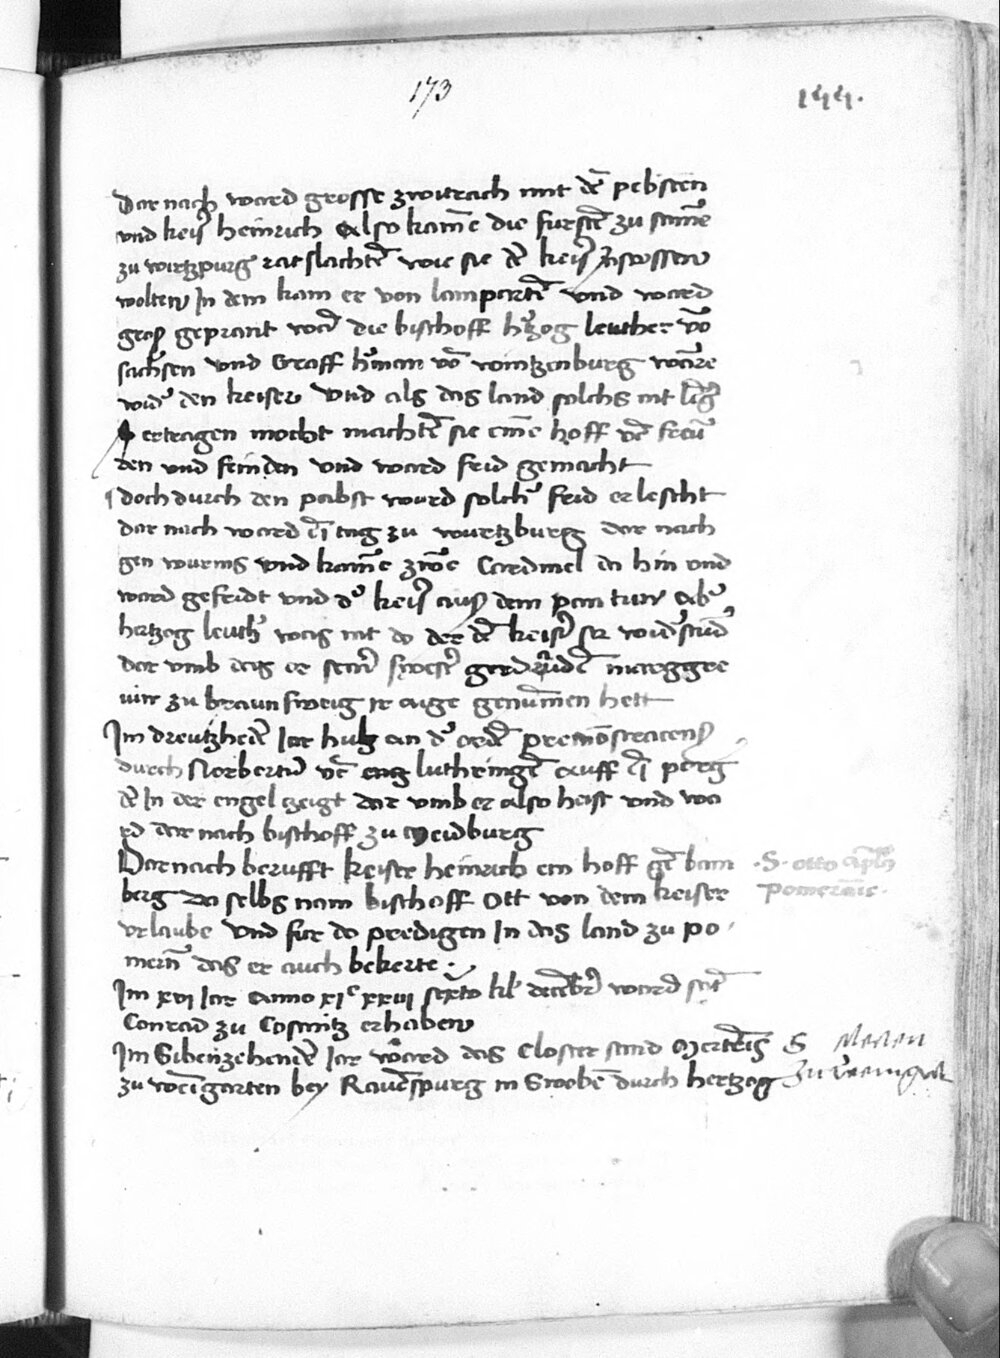 173
144.
Dar nach ward grosse zwitrach mit dē pebsten
vnd keis̉ heinrich Also kamē die furstē zu samē
zu wirtzpurg rat slachtē wie sie dē keis̉ 
wolten In dem kam er von lampartē vnd ward
groß geprant die bischoff h̉zog leuther vō
sachsen vnd Graff h̉man vō wintzenburg warē
wid̉ den keiser vnd als das land solchs nit
ertragen mocht machtē sie einē hoff vō freū
den vnd feinden vnd ward frid gemacht
doch durch den pabst ward solch̉ frid erlescht
dar nach ward eī tag zu wurtzburg dar nach
gen wurms vnd kamē zwē Cardinel da hin vnd
ward gefridt vnd d̉ keis̉ auß dem pan tun Ab̉
hertzog leuth̉ was nit do der dē keis̉ ser wid̉stūd
dar vmb das er sein̉ swest̉ gerdrudē marggre
uin zu braunsweig ir auge genūmen hett
Im dreutzhendē Iar hub an d̉ ordē premōstratenß
durch Norbertū vō luthringē auff eī perg
dē In der engel zeigt dar vmb er also heist vnd wa
rd dar nach bischoff zu Meidburg
Dar nach berufft keiser heinrich ein hoff gē bam
berg Da selbs nam bischoff Ott von dem keiser
vrlaube vnd fur do predigen In das land zu po
mern̄ das er auch bekerte
·S· otto apl̄s
pomeranie·
Im xvi Iar Anno xiᶜ xxiii sexto kl̄ decēbr̄ ward sāt
Conrad zu Costnitz erhaben
Im Sibenzehendē Iar ward das Closter sand Mertens
zu weīgarten bey Rauēspurg in Swobē durch hertzog
S Merten
zu weingart